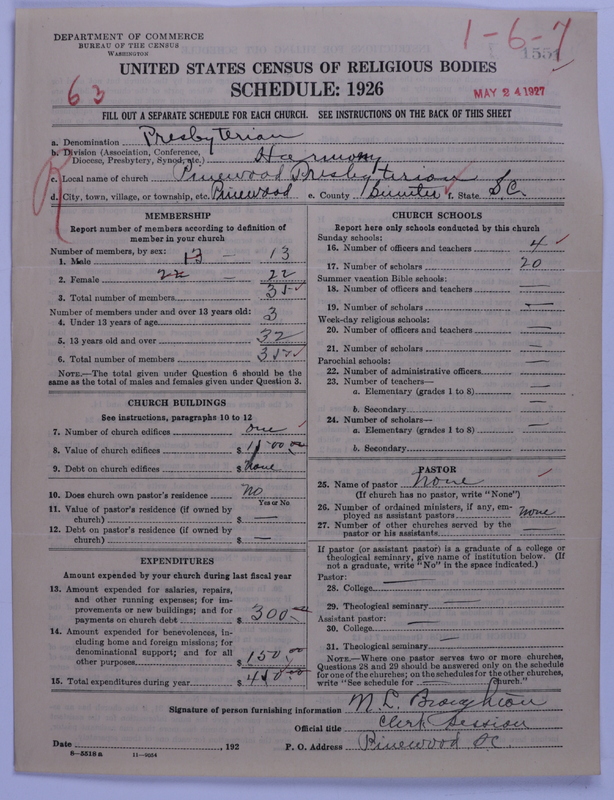 DEPARTMENT OF COMMERCE
BUREAU OF THE CENSUS
WASHINGTON
1-6-7
1551
UNITED STATES CENSUS OF RELIGIOUS BODIES
SCHEDULE: 1926
63
MAY 24 1927
FILL OUT A SEPARATE SCHEDULE FOR EACH CHURCH. SEE INSTRUCTIONS ON THE BACK OF THIS SHEET
a. Denomination Presbyterian
b. Division (Association, Conference, Diocese, Presbytery, Synod, etc.) Harmony
c. Local name of church Pinewood Presbyterian
d. City, town, village, or township, etc. Pinewood e. County Sumter f. State S.C.
MEMBERSHIP
Report number of members according to definition of
member in your church
Number of members, by sex:
1. Male 13 — 13
2. Female 22 — 22
3. Total number of members 35
Number of members under and over 13 years old:
4. Under 13 years of age 3
5. 13 years old and over 32
6. Total number of members 35
NOTE.—The total given under Question 6 should be
same as the total of males and females given under Question 3.
CHURCH BUILDINGS
See instructions, paragraphs 10 to 12
7. Number of church edifices one
8. Value of church edifices $
9. Debt on church edifices $ None
10. Does church own pastor's residence No
Yes or No
11. Value of pastor's residence (if owned by
church) $ —
12. Debt on pastor's residence (if owned by
church) $ —
EXPENDITURES
Amount expended by your church during last fiscal year
13. Amount expended for salaries, repairs,
and other running expenses; for im-
provements or new buildings; and for
payments on church debt $ 300
14. Amount expended for benevolences, in-
cluding home and foreign missions; for
denominational support; and for all
other purposes $ 150.00
15. Total expenditures during year $ 450.00
CHURCH SCHOOLS
Report here only schools conducted by this church
Sunday schools:
16. Number of officers and teachers 4
17. Number of scholars 20
Summer vacation Bible schools:
18. Number of officers and teachers —
19. Number of scholars —
Week-day religious schools:
20. Number of officers and teachers —
21. Number of scholars —
Parochial schools:
22. Number of administrative officers —
23. Number of teachers—
a. Elementary (grades 1 to 8) —
b. Secondary —
24. Number of scholars—
a. Elementary (grades 1 to 8) —
b. Secondary —
PASTOR
25. Name of pastor None
(If church has no pastor, write "None")
26. Number of ordained ministers, if any, em-
ployed as assistant pastors None
27. Number of other churches served by the
pastor or his assistants —
If pastor (or assistant pastor) is a graduate of a college or
theological seminary, give name of institution below. (If
not a graduate, write "No" in the space indicated.)
Pastor:
28. College —
29. Theological seminary —
Assistant pastor:
30. College —
31. Theological seminary —
NOTE.—Where one pastor serves two or more churches,
Questions 28 and 29 should be answered only on the schedule
for one of the churches; on the schedules for the other churches,
write "See schedule for — Church."
Signature of person furnishing information M. L. Broughton
Official title Clerk Session
Date , 192 P. O. Address Pinewood S.C.
8—5518 a 11—9024